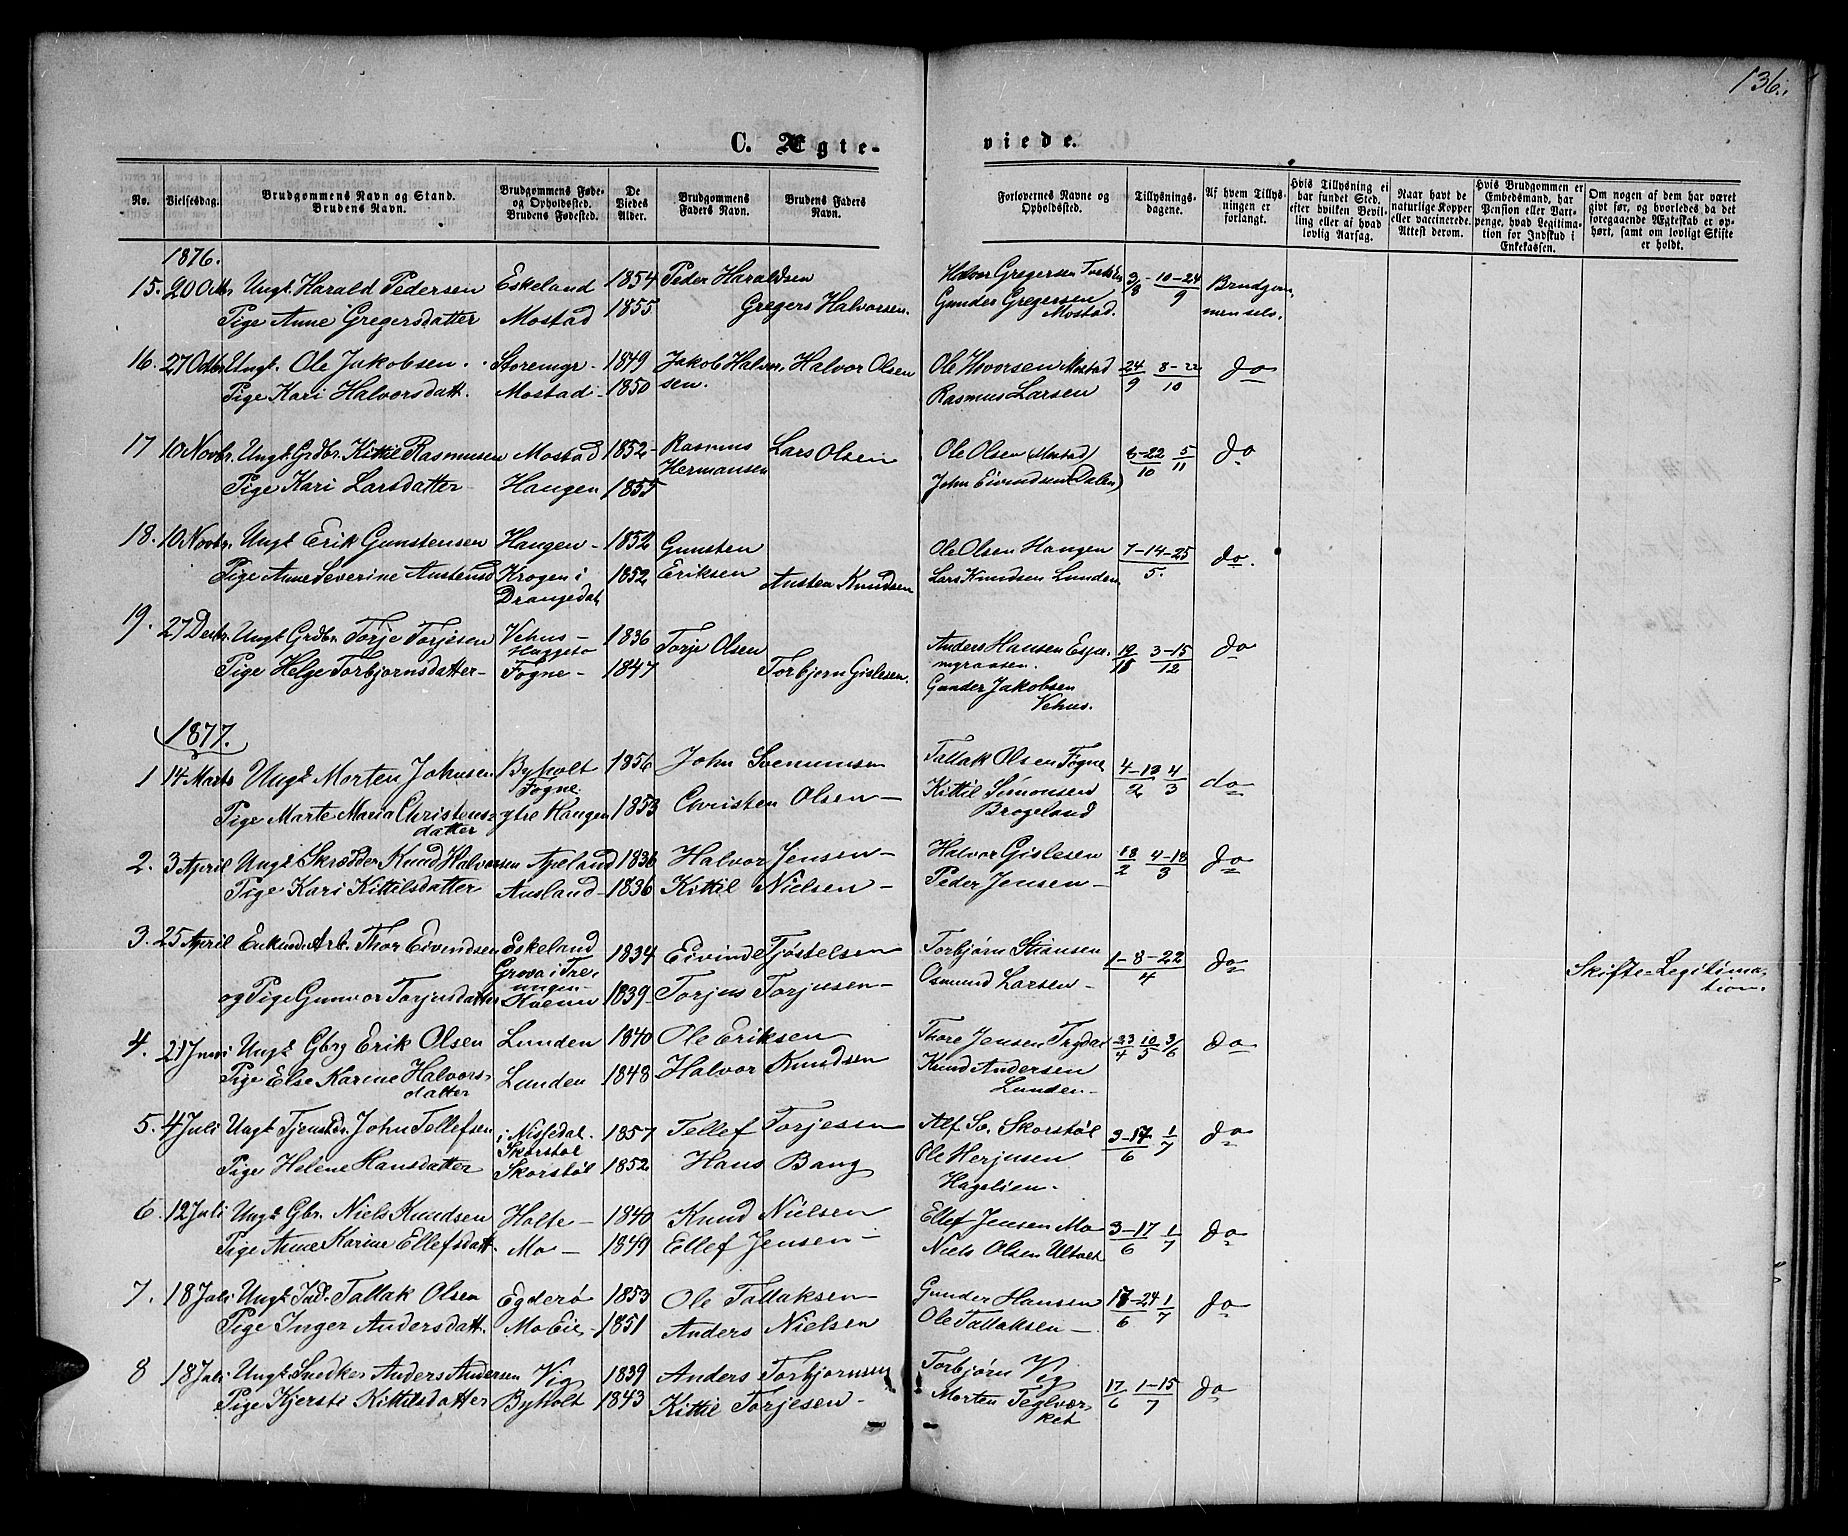 136.
C. Ægte-
viede.
No.
Vielsesdag.
Brudgommens Navn og Stand.
Brudens Navn.
Brudgommens Føde-
og Opholdssted.
Brudens Fødested.
De
Viedes
Alder.
Brudgommens
Faders Navn.
Brudens Faders
Navn.
Forlovernes Navne og
Opholdssted.
Tillysnings-
dagene.
Af hvem Tillys-
ningen er
forlangt.
Hvis Tillysning ei
har fundet Sted,
efter hvilken Bevil-
ling eller af hvad
lovlig Aarsag.
Naar havt de
naturlige Kopper
eller vaccinerede.
Attest derom.
Hvis Brudgommen er
Embedsmand, har
Pension eller Vart-
penge, hvad Legitima-
tion for Indskud i
Enkekassen.
Om nogen af dem har været
gift før, og hvorledes da det
foregaaende Ægteskab er op-
hørt, samt om lovligt Skifte
er holdt.
1876.
15. 20 Octbr. Ungk. Harald Pedersen Eskeland 1854 Peder Haraldsen Halvor Gregersen 3/9 10-24/9 Brudgom-
Pige Anne Gregersdatter Mostad 1855 Gregers Halvorsen. Gunder Gregersen men selv.
Mostad.
16. 27 Octbr. Ungk. Ole Jakobsen. Storemyr 1849 Jakob Halvor- Halvor Olsen Ole Hvorsen Mostad 24/9 8-22/10 do
Pige Kari Halvorsdatt. Mostad 1850 sen. Rasmus Larsen
17 10 Novbr. Ungk. Grdbr. Kittil Rasmusen Mostad 1852 Rasmus Lars Olsen Ole Olsen (Mostad) 8-22/10 5/11 do
Hermansen
Pige Kari Larsdatter Haugen 1855 John Eivindsen (Dalen)
18. 10 Novbr. Ungk. Erik Gunstensen Haugen 1852 Gunsten Ole Olsen Haugen 7-14-25/5. do.
Pige Anne Severine Austensd Krogen i 1852 Eriksen Austen Knudsen Lars Knudsen Lunden
Drangedal
19. 27 Decbr. Ungk. Grdbr. Torje Torjesen Vehus- 1836 Torje Olsen Anders Hansen Espe- 3-15/12 do
Haggeto
Pige Helge Torbjørnsdatter Fogne 1847 Torbjørn Gislesen. mgraasen.
Gunder Jakobsen
Vehus.
1877.
1 14 Marts Ungk. Morten Johnsen Byholt 1856 John Svenumsen Tallak Olsen Fogne 4-18/2 4/3 do
Fogne
Pige Marte Maria Christens- ytre Haugen 1853 Christen Olsen Kittil Simonsen
datter Brogeland
2. 3 April Ungk. Skrædder Knud Halvorsen Apeland 1836 Halvor Jensen Halvor Gislesen 18/2 4-18/3 do
Pige Kari Kittilsdatter Ausland 1836 Kittil Nielsen Peder Jensen
3. 25 April Enkemd. Arb. Thor Eivindsen Eskeland 1834 Eivind Tjøstelsen Torbjørn Stiansen 1-8-22/4 do Skifte-Legitima-
tion.
Grova i Tre-
ungen-
og Pige Gunvor Torjusdatter 1839 Torjus Torjusen Osmund Larsen
4. 21 Juni Ungk. Gbrg Erik Olsen Lunden 1840 Ole Eriksen Thore Jensen Trydal 23/4 10/5 3/6 do
Pige Else Karine Halvors- Lunden 1848 Halvor Knudsen Knud Andersen
datter Lunden
5. 4 Juli Ungk. Tjenstdr. John Tellefsen i Nissedal. 1857 Tellef Torjesen Alf So. Skorstøl 3-17/6 1/7 do
Skorstøl
Pige Helene Hansdatter Skorstøl 1852 Hans Bang Ole Herjusen
Hagelien.
6. 12 Juli Ungk. Gbr. Niels Knudsen Holte 1840 Knud Nielsen Ellef Jensen Mo 3-17/6 1/7 do
Pige Anne Karine Ellefsdatt. Mo 1849 Ellef Jensen Niels Olsen Ultvet
7. 18 Juli Ungk. Ind. Tallak Olsen Egderø 1853 Ole Tallaksen Gunder Hansen 17-24/6 1/7 do
Pige Inger Andersdatt. Mo Eie 1851 Anders Nielsen Ole Tallaksen
8 18 Juli Ungk. Snedker Anders Andersen Vig 1839 Anders Torbjørnsen Torbjørn Vig 17/6 1-15/7 do
Pige Kjersti Kittilsdatter Byholt 1843 Kittil Torjesen Morten Teglvær-
ket